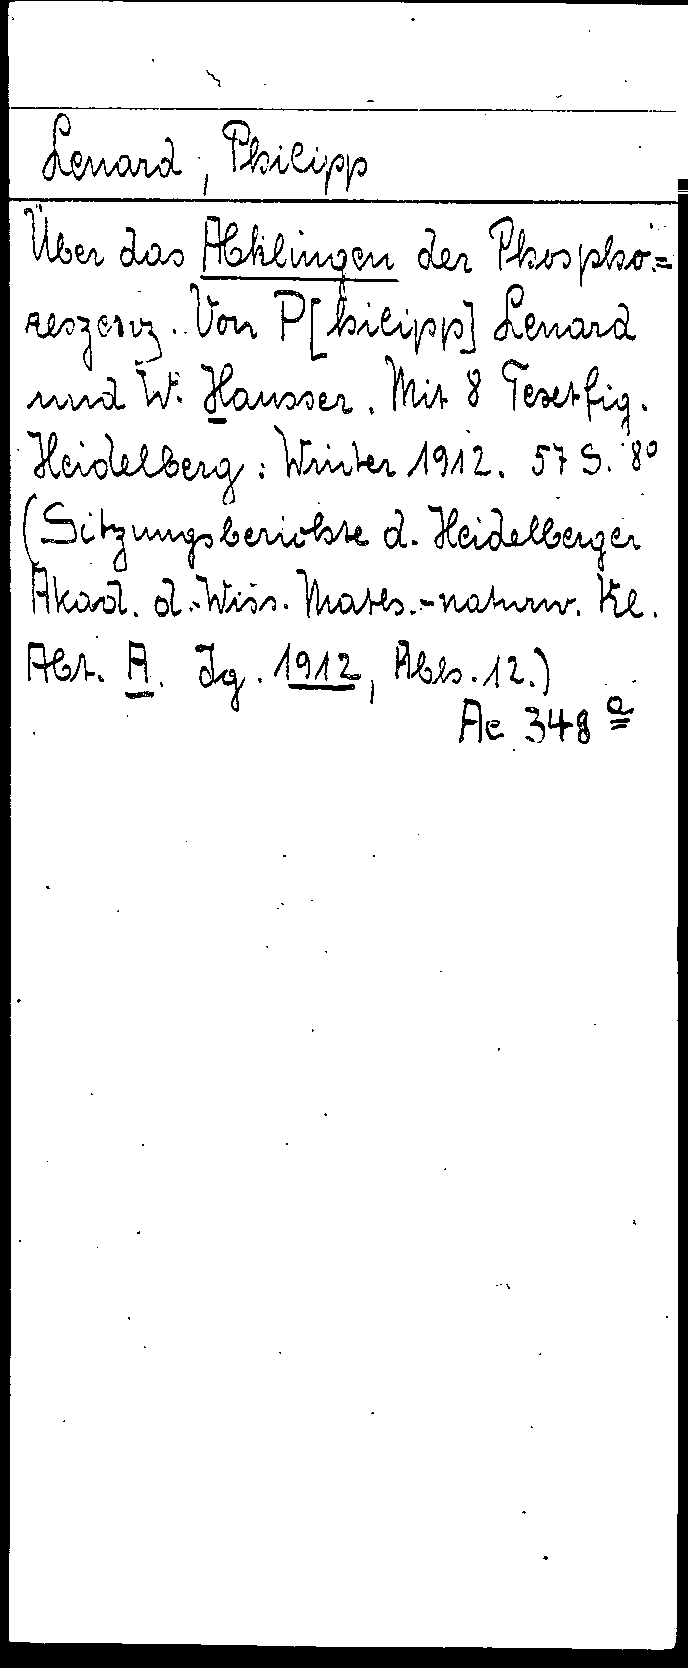 Lenard, Philipp
Über das Abklingen der Phospho=
reszenz. Von P[hilipp] Lenard
und W. Hausser. Mit 8 Textfig.
Heidelberg: Winter 1912. 57 S. 8°
(Sitzungsberichte d. Heidelberger
Akad. d. Wiss. Math.-naturw. Kl.
Abt. A. Jg. 1912, Abh. 12.)
Ac 348 a